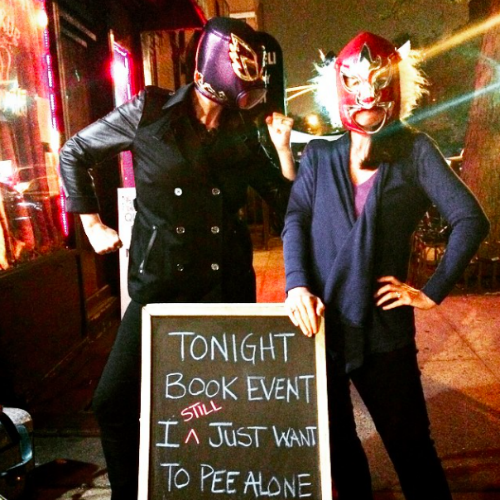 TONIGHT
BOOK EVENT
STILL
I ^ JUST WANT
TO PEE ALONE